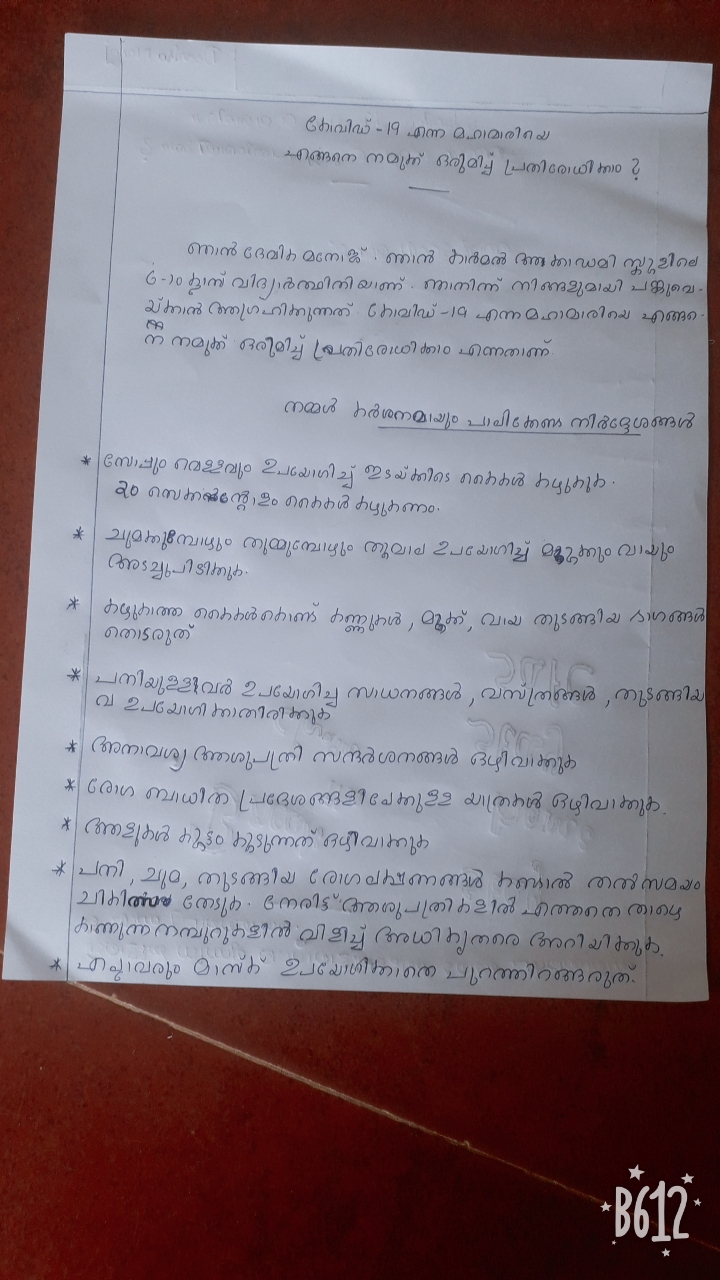 കോവിഡ് -19 എന്ന മഹാമാരിയെ
എങ്ങനെ നമുക്ക് ഒരുമിച്ച് പ്രതിരോധിക്കാം ?
ഞാൻ ദേവിക മനോജ് . ഞാൻ കാർമൽ അക്കാഡമി സ്കൂളിലെ
6-10 ക്ലാസ് വിദ്യാർത്ഥിനിയാണ്. ഞാനിന്ന് നിങ്ങളുമായി പങ്കുവെ-
യ്ക്കാൻ ആഗ്രഹിക്കുന്നത് കോവിഡ് -19 എന്ന മഹാമാരിയെ എങ്ങ-
നെ നമുക്ക് ഒരുമിച്ച് പ്രതിരോധിക്കാം എന്നതാണ്
നമ്മൾ കർശനമായും പാലിക്കേണ്ട നിർദ്ദേശങ്ങൾ
* സോപ്പും വെള്ളവും ഉപയോഗിച്ച് ഇടയ്ക്കിടെ കൈകൾ കഴുകുക .
20 സെക്കൻ്റോളം കൈകൾ കഴുകണം.
* ചുമക്കുമ്പോഴും തുമ്മുമ്പോഴും തൂവാല ഉപയോഗിച്ച് മൂക്കും വായും
അടച്ചുപിടിക്കുക.
* കഴുകാത്ത കൈകൾകൊണ്ട് കണ്ണുകൾ , മൂക്ക്, വായ തുടങ്ങിയ ഭാഗങ്ങൾ
തൊടരുത്
* പനിയുള്ളവർ ഉപയോഗിച്ച സാധനങ്ങൾ , വസ്ത്രങ്ങൾ , തുടങ്ങിയ
വ ഉപയോഗിക്കാതിരിക്കുക
* അനാവശ്യ ആശുപത്രി സന്ദർശനങ്ങൾ ഒഴിവാക്കുക
* രോഗ ബാധിത പ്രദേശങ്ങളിലേക്കുള്ള യാത്രകൾ ഒഴിവാക്കുക.
* ആളുകൾ കൂട്ടം കൂടുന്നത് ഒഴിവാക്കുക
* പനി , ചുമ, തുടങ്ങിയ രോഗലക്ഷണങ്ങൾ കണ്ടാൽ തൽസമയം
ചികിത്സ തേടുക . നേരിട്ട് ആശുപത്രികളിൽ എത്താതെ താഴെ
കാണുന്ന നമ്പറുകളിൽ വിളിച്ച് അധികൃതരെ അറിയിക്കുക.
* എല്ലാവരും മാസ്ക് ഉപയോഗിക്കാതെ പുറത്തിറങ്ങരുത്.
B612